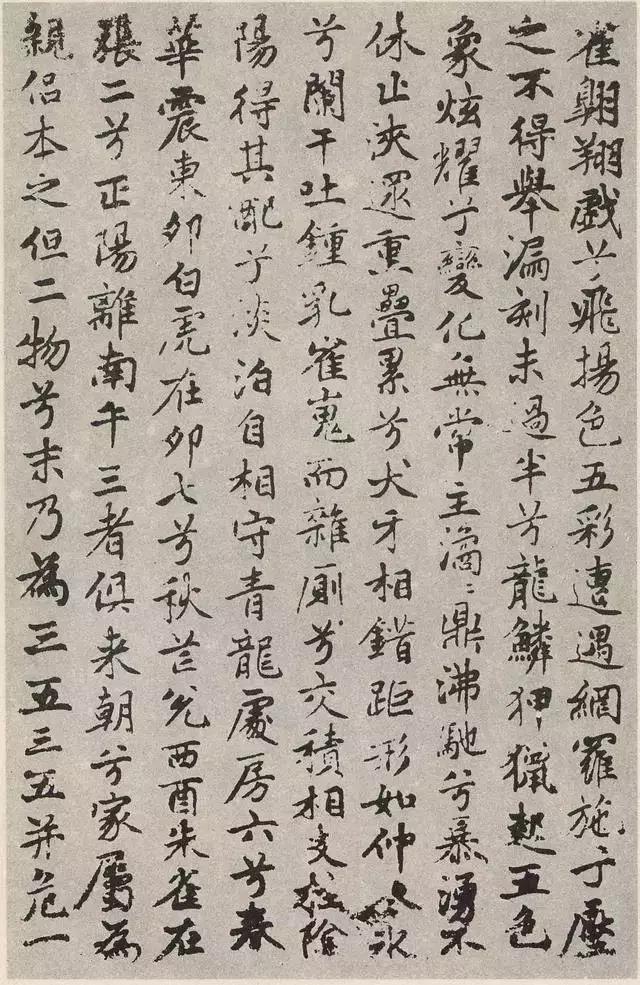 雀翱翔戲兮飛揚色五彩遭遇網羅施兮壓
之不得舉漏刻未過半兮龍鱗狎獵起五色
象炫耀兮變化無常主滴〻鼎沸馳兮暴湧不
休止浹還重疊累兮犬牙相錯距形如仲冬冰
兮闌干吐鍾乳崔嵬而雜廁兮交積相支拄陰
陽得其配兮淡泊自相守青龍處房六兮春
華震東卯白虎在卯七兮秋芒兌西酉朱雀在
張二兮正陽離南午三者俱来朝兮家屬為
親侣本之但二物兮末乃為三五三五并危一